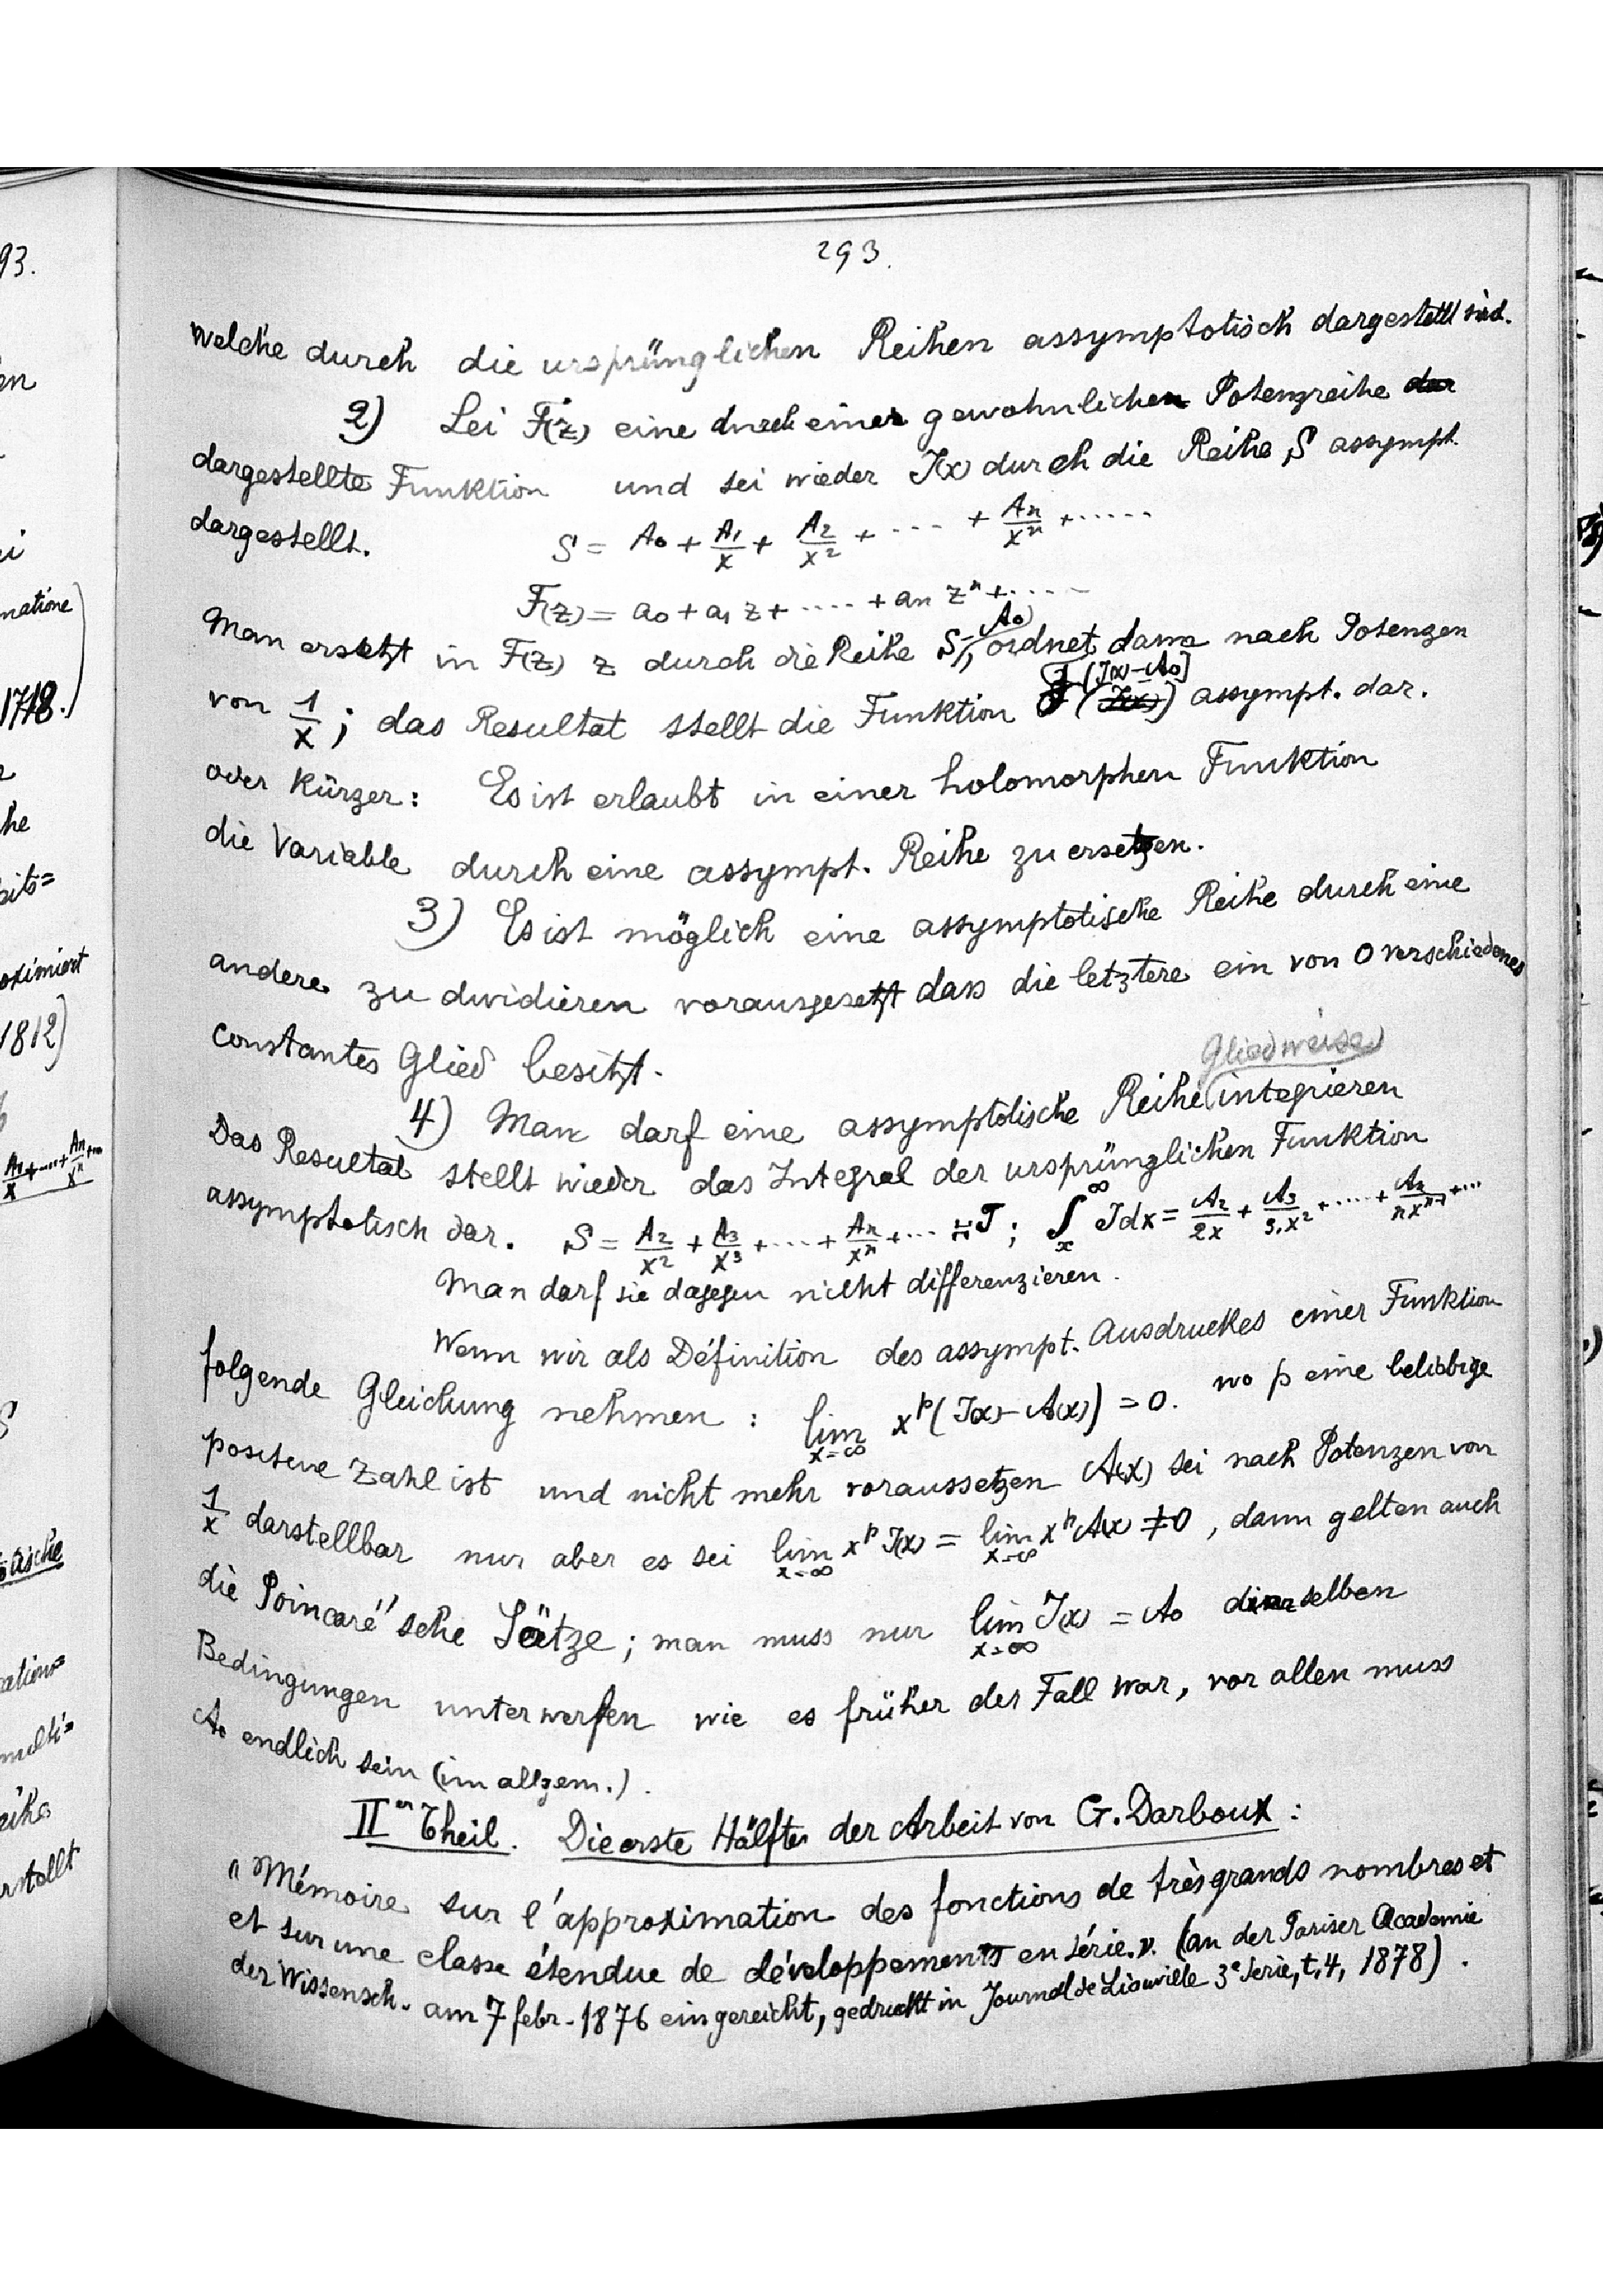 293.
welche durch die ursprünglichen Reihen assymptotisch dargestellt sind.
2) Sei F(z) eine durch einer gewohnlichen Potenzreihe
dargestellte Funktion und sei wieder J(x) durch die Reihe S assympt.
dargestellt. S = A₀ + A₁/x + A₂/x² + ···· + Aₙ/xⁿ + ·····
F(z) = a₀ + a₁ z + ····· + aₙ zⁿ + ·····
Man ersetzt in F(z) z durch die Reihe S-A₀, ordnet dann nach Potenzen
von 1/x; das Resultat stellt die Funktion F(J(x)-A₀) assympt. dar.
oder Kürzer: Es ist erlaubt in einer holomorphen Funktion
die Variable durch eine assympt. Reihe zu ersetzen.
3) Es ist möglich eine assymptotische Reihe durch eine
andere zu dividieren vorausgesetzt dass die letztere ein von 0 verschiedenes
constantes Glied besitzt.
4) Man darf eine assymptotische Reihe Gliedweise integrieren
Das Resultat stellt wieder das Integral der ursprünglichen Funktion
assymptotisch dar. S = A₂/x² + A₃/x³ + ···· + Aₙ/xⁿ + ··· J; ∫ₓ^∞ J dx = A₂/2x + A₃/3.x² + ····· + Aₙ/nxⁿ⁻¹ + ···
Man darf sie dagegen nicht differenzieren.
Wenn wir als Définition des assympt. Ausdruckes einer Funktion
folgende Gleichung nehmen: lim x=∞ xᵖ(J(x) - A(x)) = 0. wo p eine beliebige
positive Zahl ist und nicht mehr voraussetzen A(x) sei nach Potenzen von
1/x darstellbar nur aber es sei lim x=∞ xᵖ J(x) = lim x=∞ xᵖ A(x) ≠ 0, dann gelten auch
die Poincaré'sche Sätze; man muss nur lim x=∞ J(x) = A₀ denselben
Bedingungen unterwerfen wie es früher der Fall war, vor allen muss
A₀ endlich sein (im allgem.).
IIer Theil. Die erste Hälfte der Arbeit von G. Darboux:
"Mémoire sur l'approximation des fonctions de très grands nombres et
et sur une classe étendue de développements en série." (an der Pariser Academie
der Wissensch. am 7 febr. 1876 eingereicht, gedruckt in Journal de Liouville 3e Serie, t. 4, 1878).